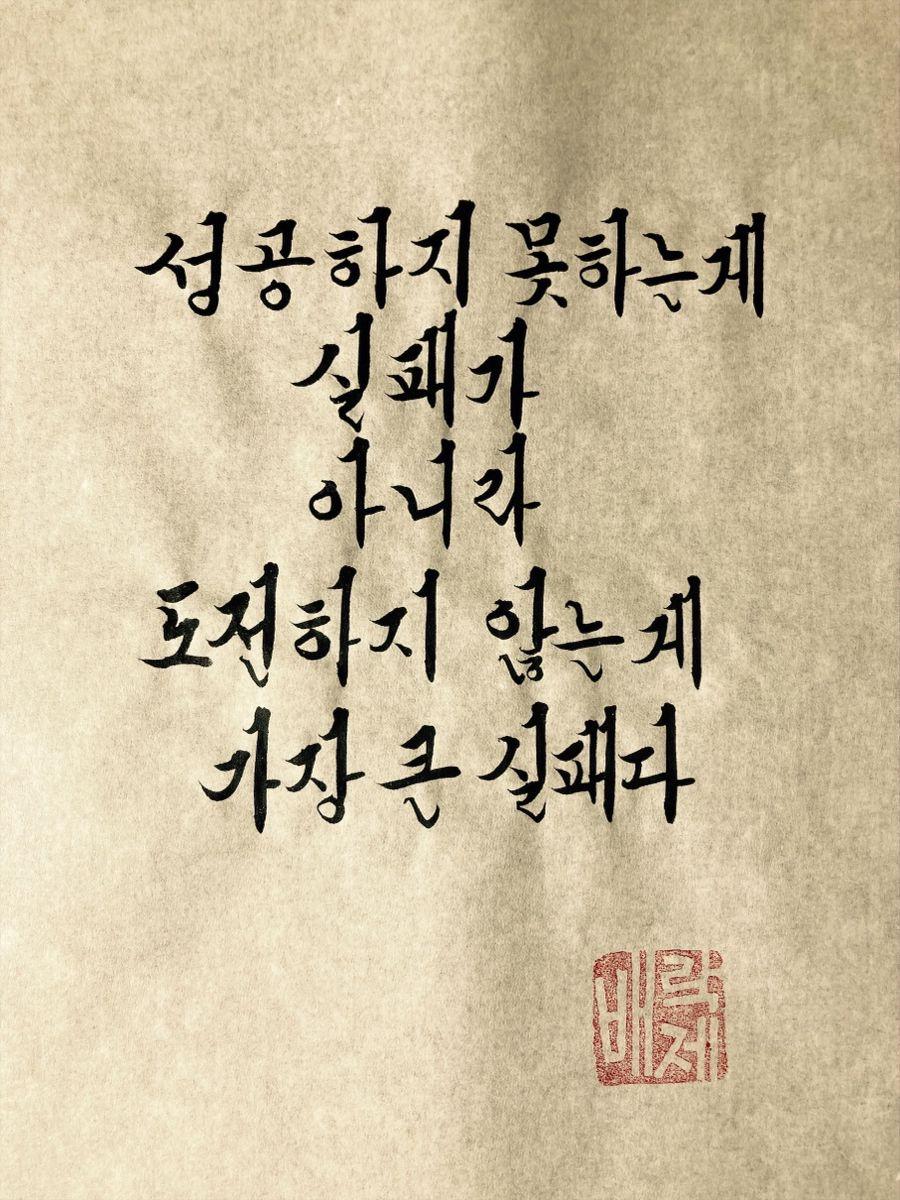 성공하지 못하는게
실패가
아니라
도전하지 않는게
가장 큰 실패다